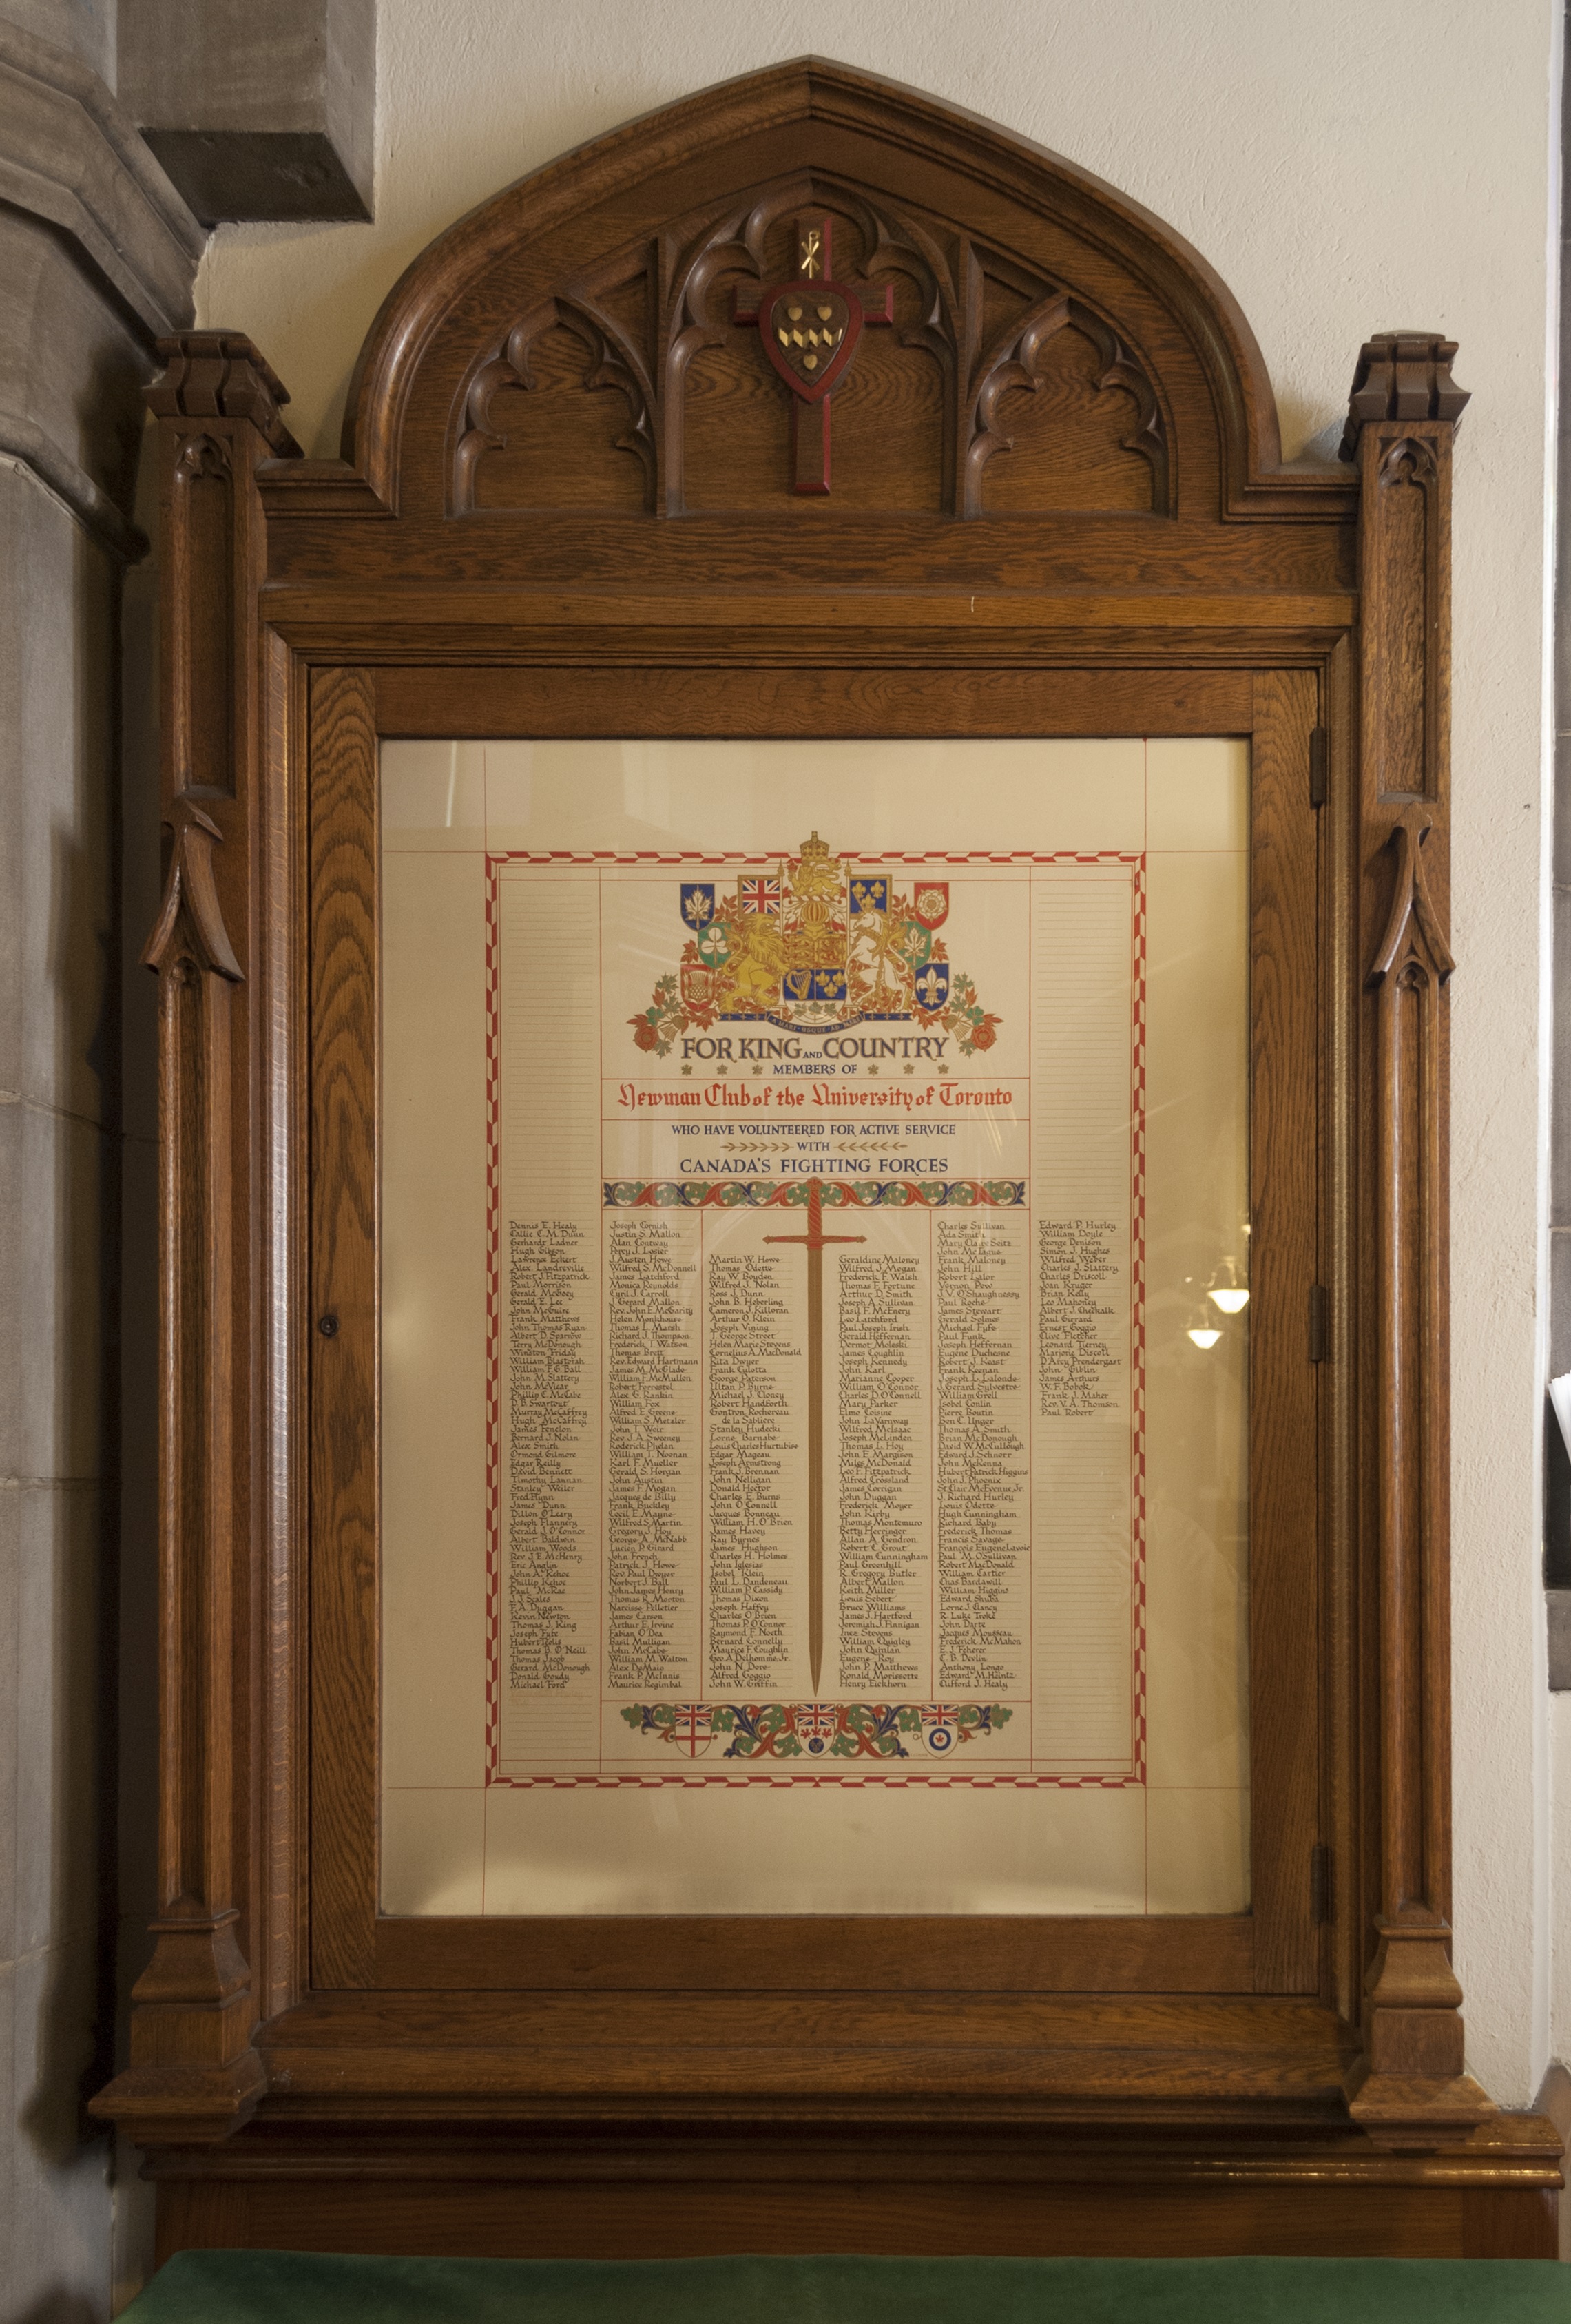 A MARI USQUE AD MARE
FOR KING AND COUNTRY
MEMBERS OF
Newman Club of the University of Toronto
WHO HAVE VOLUNTEERED FOR ACTIVE SERVICE
WITH
CANADA'S FIGHTING FORCES
Dennis E. Healy
Callie C.M. Dunn
Gerhardt Ladner
Hugh Gibson
Lawrence Eckert
Alex. Landreville
Robert J. Fitzpatrick
Paul Morrison
Gerald McGoey
Gerald E. Lee
John McGuire
Frank Matthews
John Thomas Ryan
Albert D. Sparrow
Terry McDonough
Winston Friday
William
William F.G. Ball
John M. Slattery
John McVicar
Phillip C. McCabe
D.B. Swartout
Murray McCaffrey
Hugh McCaffrey
James Fenelon
Bernard J. Nolan
Alex Smith
Ormond Gilmore
Edgar Reilly
David Bennett
Timothy Lannan
Stanley Weiler
Fred Flynn
James Dunn
Dillon O'Leary
Joseph Flannery
Gerald J. O'Connor
Albert Baldwin
William Woods
Rev. J.E. McHenry
Eric Anglin
John A. Kehoe
Phillip Kehoe
Paul McRae
J.J. Scales
F.A. Duggan
Kevin Newton
Thomas J. King
Joseph Fyfe
Hubert
Thomas B. O'Neill
Thomas Jacob
Gerard McDonough
Donald Goudy
Michael Ford
Joseph Cornish
Justin S. Mallon
Alan Conway
Percy J. Losier
J. Austen Howe
Wilfred S. McDonnell
James Latchford
Monica Reynolds
Cyril J. Carroll
J. Gerard Mallon
Rev. John E. McGarity
Helen Monkhouse
Thomas L. Marsh
Richard J. Thompson
Frederick T. Watson
Thomas Brett
Rev. Edward Hartmann
James M. McGlade
William F. McMullen
Robert Forrestel
Alex G. Rankin
William Fox
Alfred E. Greene
William S. Metzler
John T. Weir
Rev. J.A. Sweeney
Roderick Phelan
William T. Noonan
Karl F. Mueller
Gerald S. Horgan
John Austin
James F. Mogan
Jacques de Billy
Frank Buckley
Cecil E. Mayne
Wilfred S. Martin
Gregory J. Hoy
George A. McNabb
Lucien P. Girard
John French
Patrick J. Howe
Rev. Paul Dwyer
Norbert J. Ball
John James Henry
Thomas R. Morton
Narcisse Pelletier
James Carson
Arthur E. Irvine
Fabian O'Dea
Basil Mulligan
John McCabe
William M. Walton
Alex DeMaio
Frank P. McInnis
Maurice Regimbal
Martin W. Howe
Thomas Odette
Ray W. Boyden
Wilfred J. Nolan
Ross J. Dunn
John B. Heberling
Cameron J. Killoran
Arthur O. Klein
Joseph Vining
T. George Street
Helen Marie Stevens
Cornelius A. MacDonald
Rita Dwyer
Frank Culotta
George Paterson
Ultan P. Byrne
Michael J. Cloney
Robert Handforth
Gontron Rochereau
de la Sabliere
Stanley Hudecki
Lorne Barnabe
Louis Charles Hurtubise
Edgar Mageau
Joseph Armstrong
Frank J. Brennan
John Nelligan
Donald Hector
Charles E. Burns
John O'Connell
Jacques Bonneau
William H. O'Brien
James Havey
Ray Byrnes
James Hughson
Charles H. Holmes
John Iglesias
Isobel Klein
Paul L. Dandeneau
William P. Cassidy
Thomas Dixon
Joseph Haffey
Charles O'Brien
Thomas P. O'Connor
Raymond F. North
Bernard Connelly
Maurice F. Coughlin
Geo. A. Delhomme Jr.
John N. Dore
Alfred Goggio
John W. Griffin
Geraldine Maloney
Wilfred J. Mogan
Frederick F. Walsh
Thomas F. Fortune
Arthur D. Smith
Joseph A. Sullivan
Basil F. McEnery
Leo Latchford
Paul Joseph Irish
Gerald Heffernan
Dermot Moleski
James Coughlin
Joseph Kennedy
John Karl
Marianne Cooper
William O'Connor
Charles D. O'Connell
Mary Parker
Elmo Cosine
John LaVanway
Wilfred McIsaac
Joseph McLinden
Thomas L. Hoy
John E. Margison
Miles McDonald
Leo F. Fitzpatrick
Alfred Crossland
James Corrigan
John Duggan
Frederick Moyer
John Kirby
Thomas Montemuro
Betty Herringer
Allan A. Gendron
Robert C. Grout
William Cunningham
Paul Greenhill
R. Gregory Butler
Albert Mallon
Keith Miller
Louis Sebert
Bruce Williams
James J. Hartford
Jeremiah J. Finnigan
Inez Stevens
William Quigley
John Quinlan
Eugene Roy
John P. Matthews
Ronald Morissette
Henry Eickhorn
Charles Sullivan
Ada Smith
Mary Clare Seitz
John McManus
Frank Maloney
John Hill
Robert Lalor
Vernon Pew
J.V. O'Shaughnessy
Paul Roche
James Stewart
Gerald Solmes
Michael Fyfe
Paul Funk
Joseph Heffernan
Eugene Duchesne
Robert J. Keast
Frank Keenan
Joseph L. Lalonde
J. Gerard Sylvestre
William Grell
Isobel Conlin
Pierre Boutin
Ben C. Unger
Thomas A. Smith
Brian McDonough
David W. McCullough
Edward J. Schnorr
John McKenna
Hubert Patrick Higgins
John J. Phoenix
St. Clair McEvenue Jr.
J. Richard Hurley
Louis Odette
Hugh Cunningham
Richard Baby
Frederick Thomas
Francis Savage
François Eugene Lavoie
Paul M. O'Sullivan
Robert MacDonald
William Cartier
Chas. Bardawill
William Higgins
Edward Shuba
Lorne J. Clancy
R. Luke Teske
John Darte
Jacques Mousseau
Frederick McMahon
E.J. Feherer
C.B. Devlin
Anthony Longo
Edward M. Heintz
Clifford J. Healy
Edward P. Hurley
William Doyle
George Denison
Simon J. Hughes
Wilfred Weber
Charles J. Slattery
Charles Driscoll
Joan Kruger
Brian Kelly
Leo Mahoney
Albert J. Cheikalk
Paul Guyard
Ernest Goggio
Clive Fletcher
Leonard Tierney
Marjorie Driscoll
D'Arcy Prendergast
John Giblin
James Arthurs
W.F. Bobok
Frank J. Maher
Rev. V.A. Thomson
Paul Robert